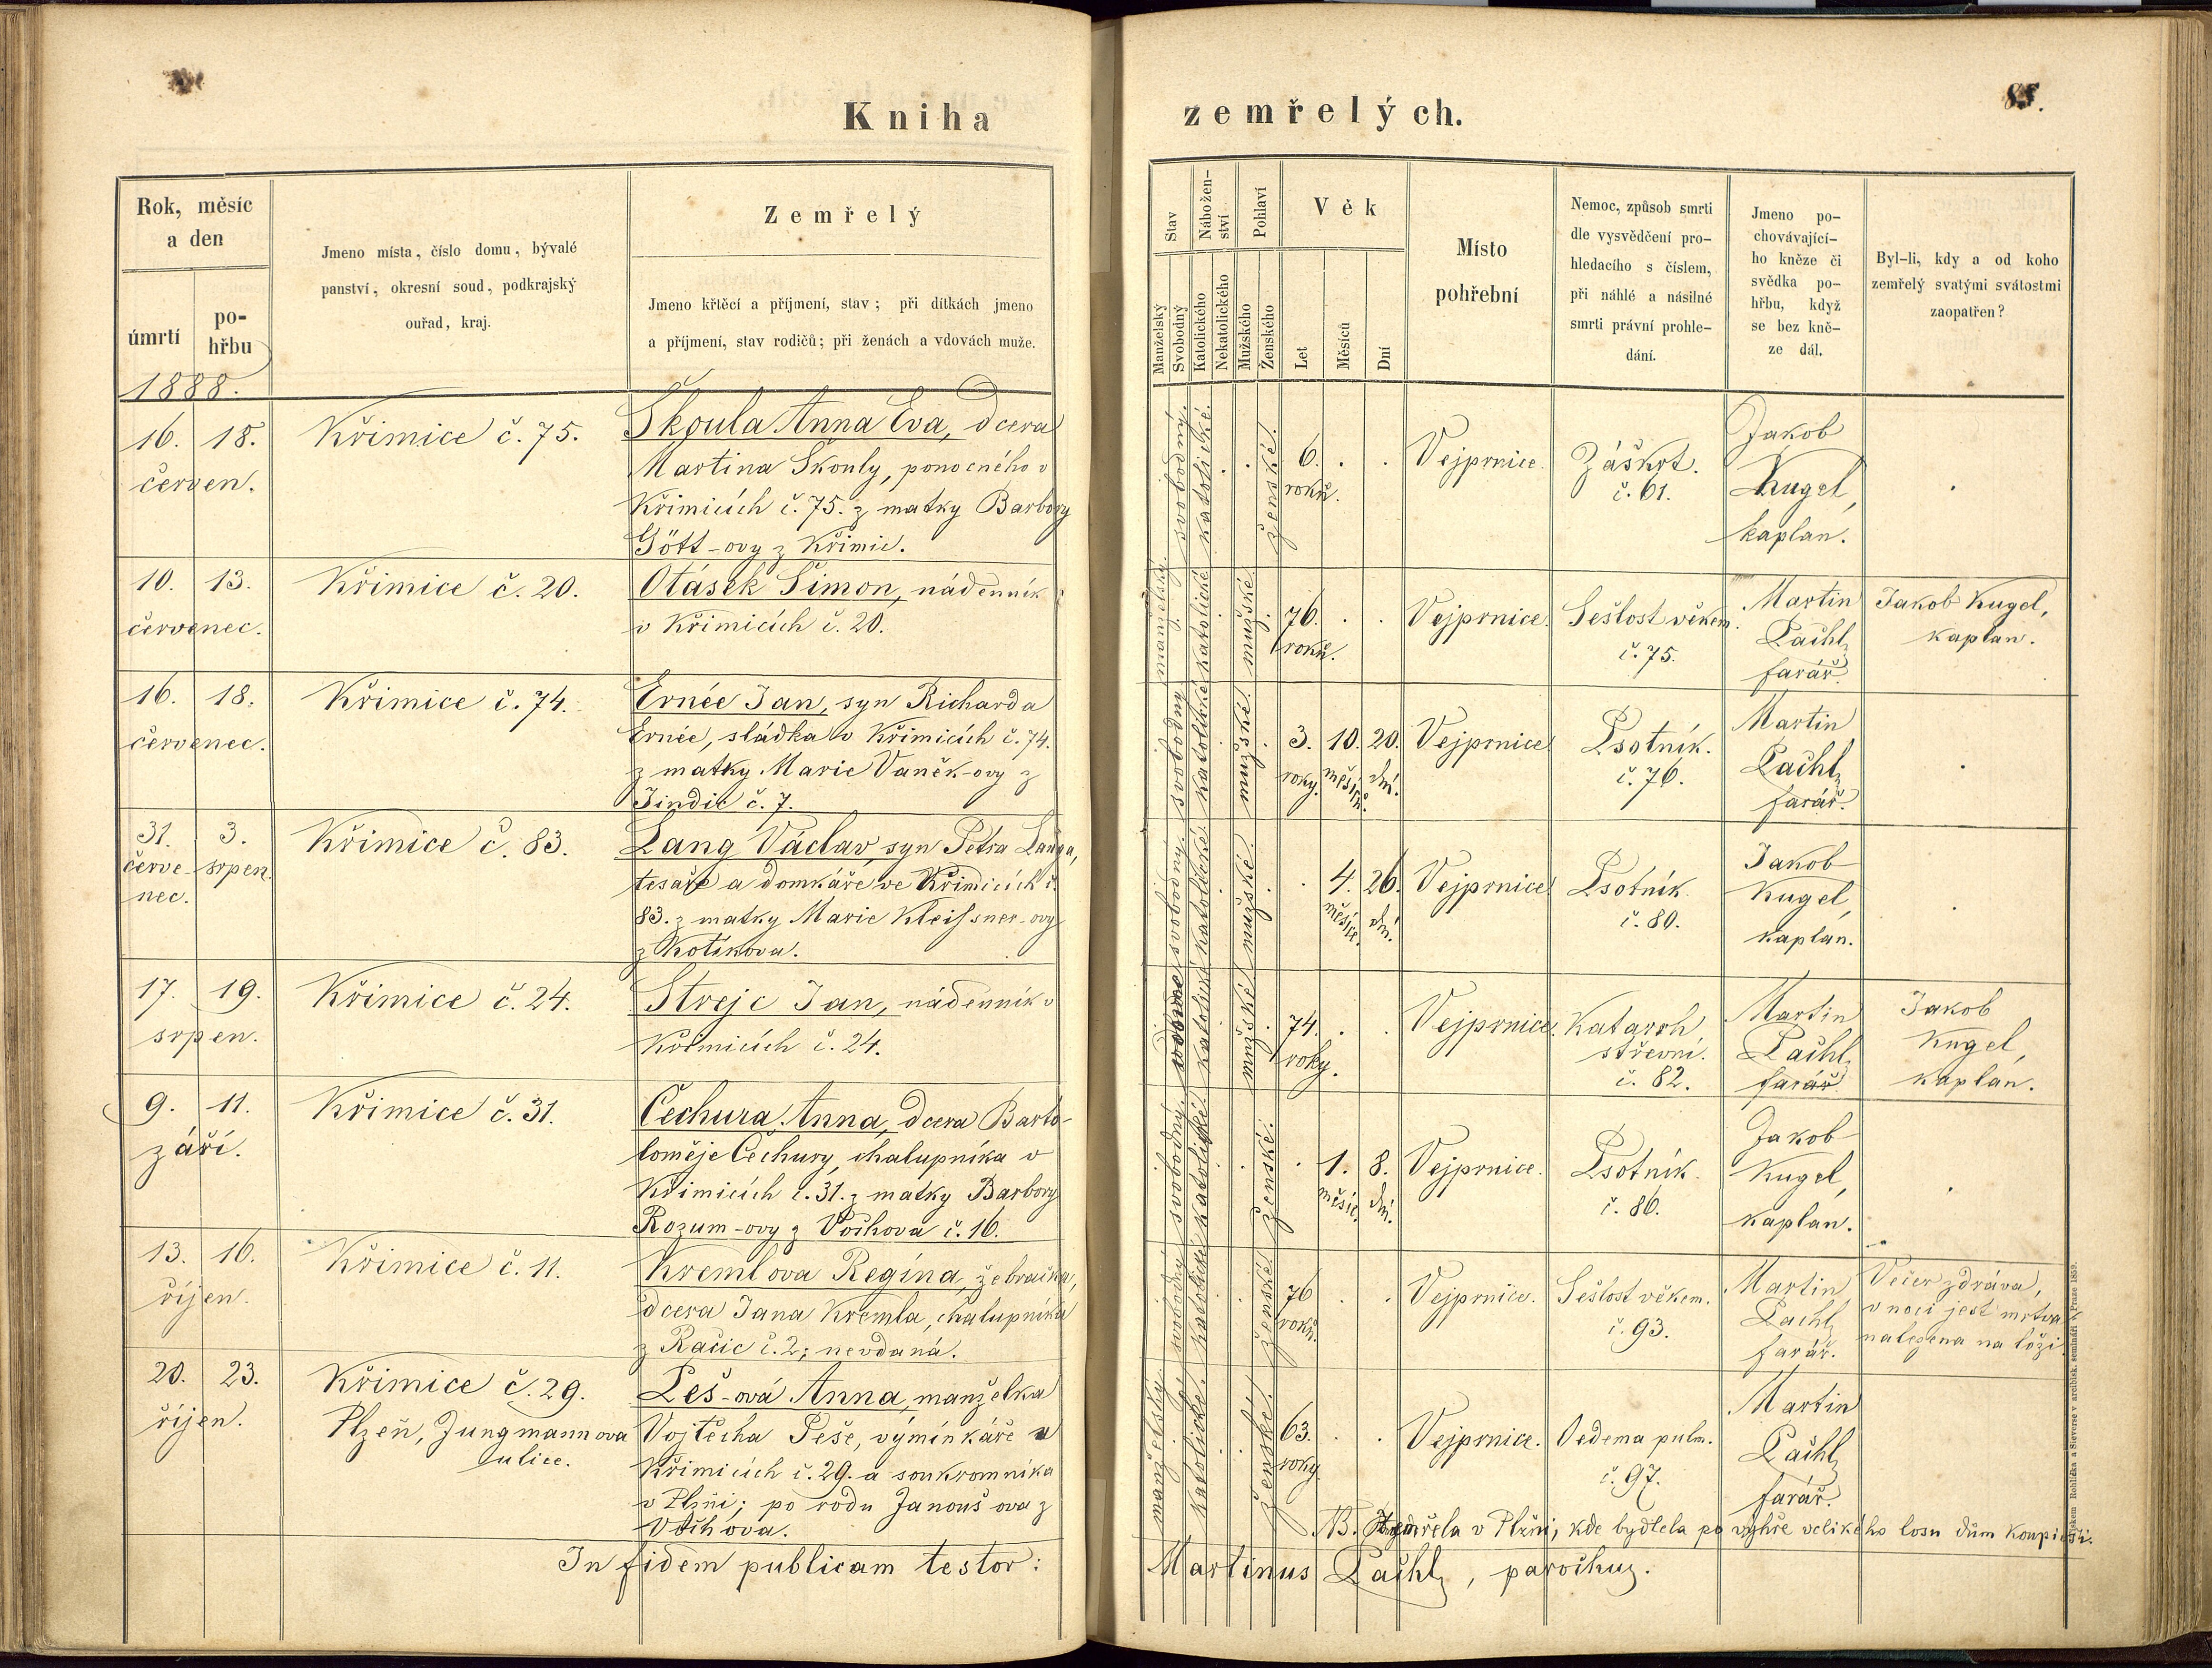 Kniha
zemřelých.
85.
Rok, měsíc
a den
úmrtí
po-
hřbu
Jmeno místa, číslo domu, bývalé
panství, okresní soud, podkrajský
ouřad, kraj.
Zemřelý
Jmeno křtěcí a příjmení, stav; při dítkách jmeno
a příjmení, stav rodičů; při ženách a vdovách muže.
Stav
Manželský
Svobodný
Nábožen-
ství
Katolického
Nekatolického
Pohlaví
Mužského
Ženského
Věk
Let
Měsíců
Dní
Místo
pohřební
Nemoc, způsob smrti
dle vysvědčení pro-
hledacího s číslem,
při náhlé a násilné
smrti právní prohle-
dání.
Jmeno po-
chovávající-
ho kněze či
svědka po-
hřbu, když
se bez kně-
ze dál.
Byl-li, kdy a od koho
zemřelý svatými svátostmi
zaopatřen?
1888.
16. 18.
červen.
Křimice č. 75.
Škoula Anna Eva, dcera
Martina Škouly, ponocného v
Křimicích č. 75. z matky Barbory
Gött-ovy z Křimic.
svobodný.
katolické.
ženské.
6.
roků.
Vejprnice.
Záškrt.
č. 61.
Jakob
Kugel,
kaplan.
10. 13.
červenec.
Křimice č. 20.
Otásek Šimon, nádenník
v Křimicích č. 20.
katolické
mužské.
76.
roků.
Vejprnice.
Sešlost věkem.
č. 75.
Martin
Pachl,
farář.
Jakob Kugel,
kaplan.
16. 18.
červenec.
Křimice č. 74.
Ernée Jan, syn Richarda
Ernée, sládka v Křimicích č. 74.
z matky Marie Vaněk-ovy z
Jindic č. 7.
svobodný
katolické
mužské.
3. 10. 20.
roky. měsíců. dní.
Vejprnice
Psotník.
č. 76.
Martin
Pachl,
farář.
31. 3.
červe- srpen.
nec.
Křimice č. 83.
Lang Václav, syn Petra Langa,
tesaře a domkáře ve Křimicích č.
83. z matky Marie Kleissner-ovy
z Kotíkova.
svobodný.
katolické
mužské.
4. 26.
měsíce. dní.
Vejprnice
Psotník
č. 80.
Jakob
Kugel,
kaplan.
17. 19.
srpen.
Křimice č. 24.
Strejc Jan, nádenník v
Křimicích č. 24.
katolické
mužské
74.
roky.
Vejprnice.
Katarrh
střevní.
č. 82.
Martin
Pachl,
farář
Jakob
Kugel,
kaplan.
9. 11.
září.
Křimice č. 31.
Čechura Anna, dcera Barto-
loměje Čechury, chalupníka v
Křimicích č. 31. z matky Barbory
Rozum-ovy z Vochova č. 16.
svobodný.
katolické
ženské.
1. 8.
měsíc. dní.
Vejprnice.
Psotník.
č. 86.
Jakob
Kugel,
kaplan.
13. 16.
říjen.
Křimice č. 11.
Kremlova Regina, žebračka,
dcera Jana Kremla, chalupníka
z Račic č. 2; nevdaná.
svobodný
katolické
ženské
76
roků.
Vejprnice.
Sešlost věkem.
č. 93.
Martin
Pachl,
farář.
Večer zdráva,
v noci jest mrtva
nalezena na loži.
20. 23.
říjen.
Křimice č. 29.
Plzeň, Jungmannova
ulice.
Peš-ová Anna, manželka
Vojtěcha Peše, výminkáře v
Křimicích č. 29. a soukromníka
v Plzni; po rodu Janoušova z
Vochova.
manželský.
katolické
ženské.
63.
roky
Vejprnice.
Oedema pulm.
č. 97.
Martin
Pachl,
farář.
NB. Zemřela v Plzni, kde bydlela po výhře velikého losu dům koupivši.
In fidem publicam testor:
Martinus Pachl, parochus.